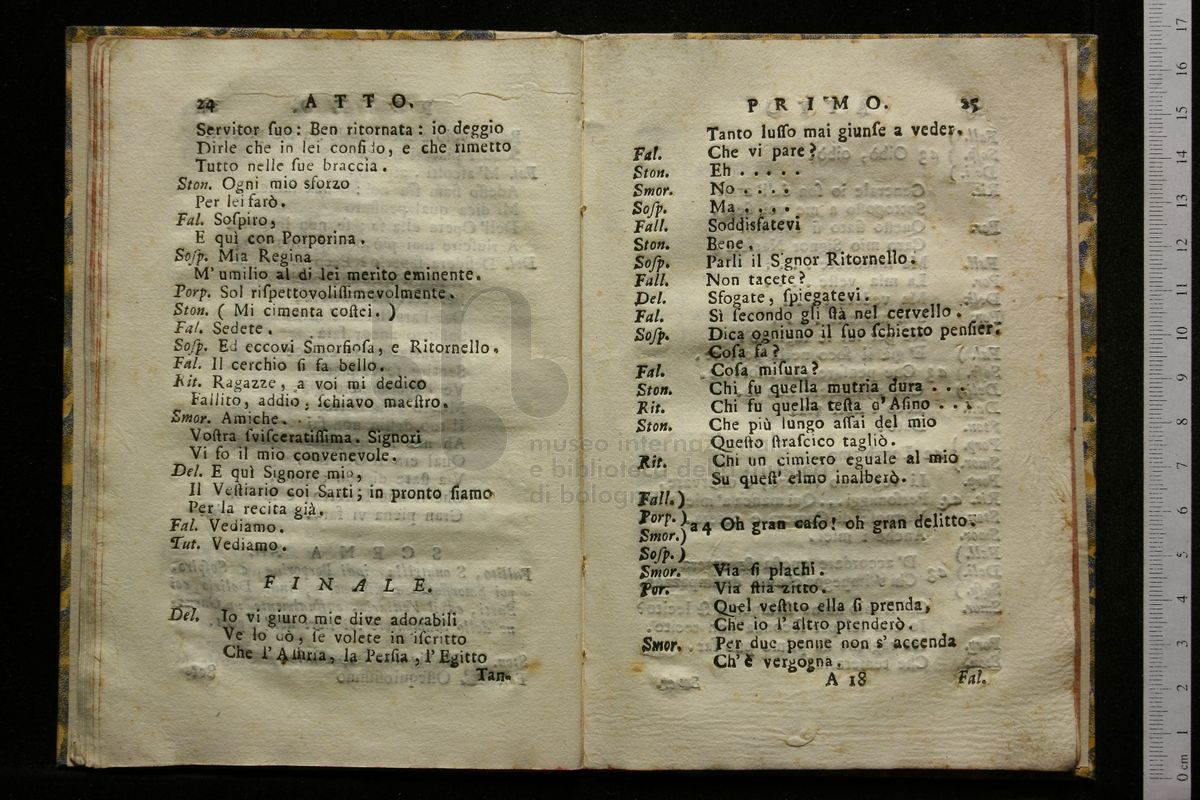 24 ATTO.
Servitor ſuo: Ben ritornata: io deggio
Dirle che in lei confido, e che rimetto
Tutto nelle ſue braccia.
Ston. Ogni mio sforzo
Per lei farò.
Fal. Soſpiro,
E quì con Porporina.
Soſp. Mia Regina
M'umilio al di lei merito eminente.
Porp. Sol riſpettovoliſſimevolmente.
Ston. ( Mi cimenta coſtei. )
Fal. Sedete.
Soſp. Ed eccovi Smorfioſa, e Ritornello.
Fal. Il cerchio ſi fa bello.
Rit. Ragazze, a voi mi dedico
Fallito, addio; ſchiavo maeſtro.
Smor. Amiche.
Voſtra ſviſceratiſſima. Signori
Vi fo il mio convenevole.
Del. E quì Signore mio,
Il Veſtiario coi Sarti; in pronto ſiamo
Per la recita già.
Fal. Vediamo.
Tut. Vediamo.
FINALE.
Del. Io vi giuro mie dive adorabili
Ve lo dò, ſe volete in iſcritto
Che l'Aſſiria, la Perſia, l'Egitto
Tan.
PRIMO. 25
Tanto luſſo mai giunſe a veder.
Fal. Che vi pare?
Ston. Eh . . . . .
Smor. No . . . .
Soſp. Ma . . . .
Fall. Soddisfatevi
Ston. Bene.
Soſp. Parli il Signor Ritornello.
Fall. Non tacete?
Del. Sfogate, ſpiegatevi.
Fal. Sì ſecondo gli ſtà nel cervello.
Soſp. Dica ogniuno il ſuo ſchietto penſier.
Coſa fa?
Fal. Coſa miſura?
Ston. Chi fu quella mutria dura . . .
Rit. Chi fu quella teſta d'Aſino . . .
Ston. Che più lungo aſſai del mio
Queſto ſtraſcico tagliò.
Rit. Chi un cimiero eguale al mio
Su queſt' elmo inalberò.
Fall. )
Porp. )
Smor. ) a 4 Oh gran caſo! oh gran delitto.
Soſp. )
Smor. Via ſi plachi.
Por. Via ſtia zitto.
Quel veſtito ella ſi prenda,
Che io l'altro prenderò.
Smor. Per due penne non s'accenda
Ch'è vergogna.
A 18 Fal.
museo interna
e biblioteca del
di bologn
0 cm 1 2 3 4 5 6 7 8 9 10 11 12 13 14 15 16 17